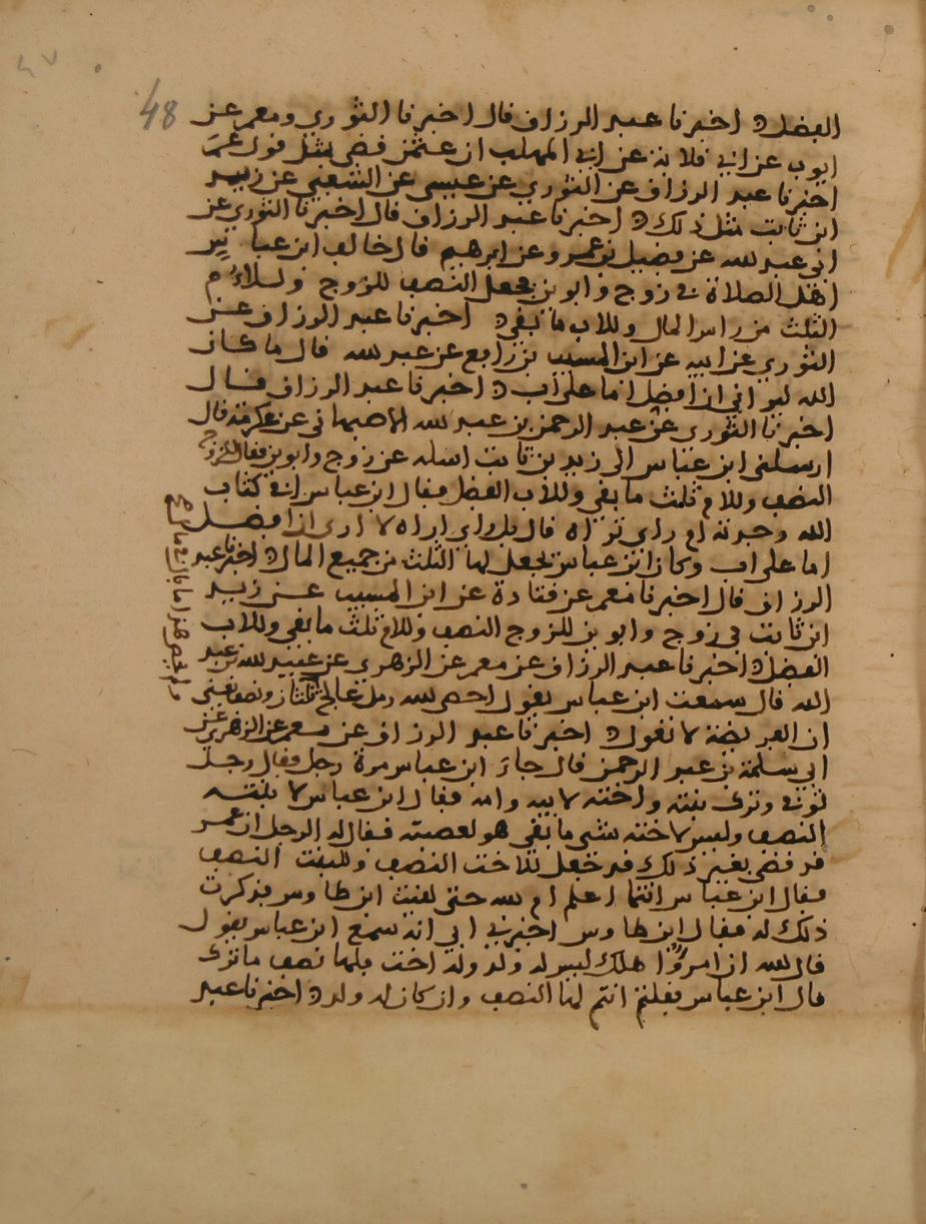 48
الفضل اخبرنا عبد الرزاق قال اخبرنا الثوري ومعمر عن
ايوب عن ابي قلابة عن ابي المهلب ان عثمن قضى بمثل قول عمر
اخبرنا عبد الرزاق عن الثوري عن عيسى عن الشعبي عن زيد
ابن ثابت مثل ذلك اخبرنا عبد الرزاق قال اخبرنا الثوري عن
ابي عبد لله عن فضيل بن عمرو عن ابرهيم قال خالف ابن عباس
اهل الصلاة في زوج وابوين فجعل النصف للزوج وللام
الثلث من راس المال وللاب ما بقي اخبرنا عبد الرزاق عن
الثوري عن ابيه عن ابن المسيب بن رافع عن عبد لله قال ما كان
الله ليراني ان افضل اما على اب اخبرنا عبد الرزاق قال
اخبرنا الثوري عن عبد الرحمن بن عبد لله الاصبهاني عن عكرمة قال
ارسلني ابن عباس الى زيد بن ثابت اسله عن زوج وابوين فقال للزوج
النصف وللام ثلث ما بقي وللاب الفضل فقال ابن عباس افي كتاب
الله وجدته ام راي تراه قال بل راي اراه لا ارى ان افضل
اما على اب وكان ابن عباس يجعل لها الثلث من جميع المال اخبرنا عبد
الرزاق قال اخبرنا معمر عن قتادة عن ابن المسيب عن زيد
ابن ثابت في زوج وابوين للزوج النصف وللام ثلث ما بقي وللاب
الفضل اخبرنا عبد الرزاق عن معمر عن الزهري عن عبيد لله بن عبد
الله قال سمعت ابن عباس يقول احصى لله رمل عالج ونصفا يعني
ان الفريضة لا تعول اخبرنا عبد الرزاق عن معمر عن الزهري عن
ابي سلمة بن عبد الرحمن قال جاء ابن عباس مرة رجل فقال رجل
توفي وترك بنته واخته لابيه وامه فقال ابن عباس لابنته
النصف وليس لاخته شي ما بقي هو لعصبته فقال له الرجل ان عمر
قد قضى بغير ذلك قد جعل للاخت النصف وللبنت النصف
فقال ابن عباس انتم اعلم ام لله حتى لقيت ابن طاوس فذكرت
ذلك له فقال ابن طاوس اخبرني ابي انه سمع ابن عباس يقول
قال لله ان امرؤا هلك ليس له ولد وله اخت فلها نصف ما ترك
قال ابن عباس فقلتم انتم لها النصف وان كان له ولد اخبرنا عبد